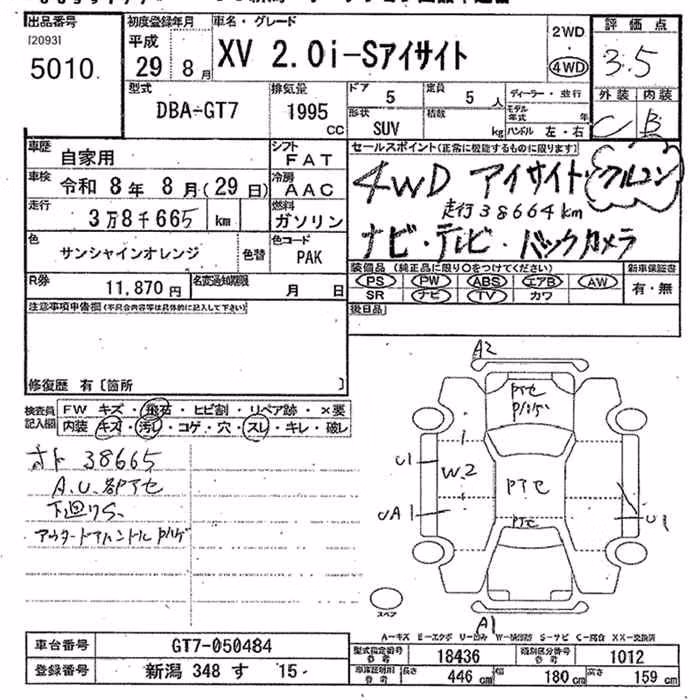 出品番号
[2093]
5010
初度登録年月
平成
29年8月
車名・グレード
XV 2.0i-Sアイサイト
2WD
4WD
評価点
3.5
外装 内装
C B
型式
DBA-GT7
排気量
1995
CC
ドア
5
定員
5人
形状
SUV
積数
kg
ディーラー・並行
モデル年式 年
ハンドル 左・右
車歴
自家用
シフト
FAT
車検
令和 8年 8月(29日)
冷房
AAC
走行
3万8千665
km
燃料
ガソリン
色
サンシャインオレンジ
色替
色コード
PAK
R券
11,870円
名変通知期限
月 日
セールスポイント(正常に機能するものに限ります)
4WD アイサイト・クルコン
走行38664km
ナビ・テレビ・バックカメラ
装備品 (純正品に限り○をつけてください)
新車保証書
PS PW ABS エアB AW
有・無
SR ナビ TV カワ
後日品
注意事項申告欄(不具合内容等は具体的に記入して下さい)
修復歴 有[箇所 ]
検査員記入欄
FW キズ・飛石・ヒビ割・リペア跡・×要
内装 キズ・汚レ・コゲ・穴・スレ・キレ・破レ
オド 38665
A.U.部アセ
下廻りS.
アウタードアハンドルP
A2
アセ
U1
W2
アセ
UA1
アセ
U1
スペア
A1
A-キズ E-エクボ U-凹み W-補修跡 S-サビ C-腐食 XX-交換済
車台番号
GT7-050484
登録番号
新潟 348 す 15-
型式指定番号
参考
18436
類別区分番号
参考
1012
参考
長さ
446cm
幅
180cm
高さ
159cm